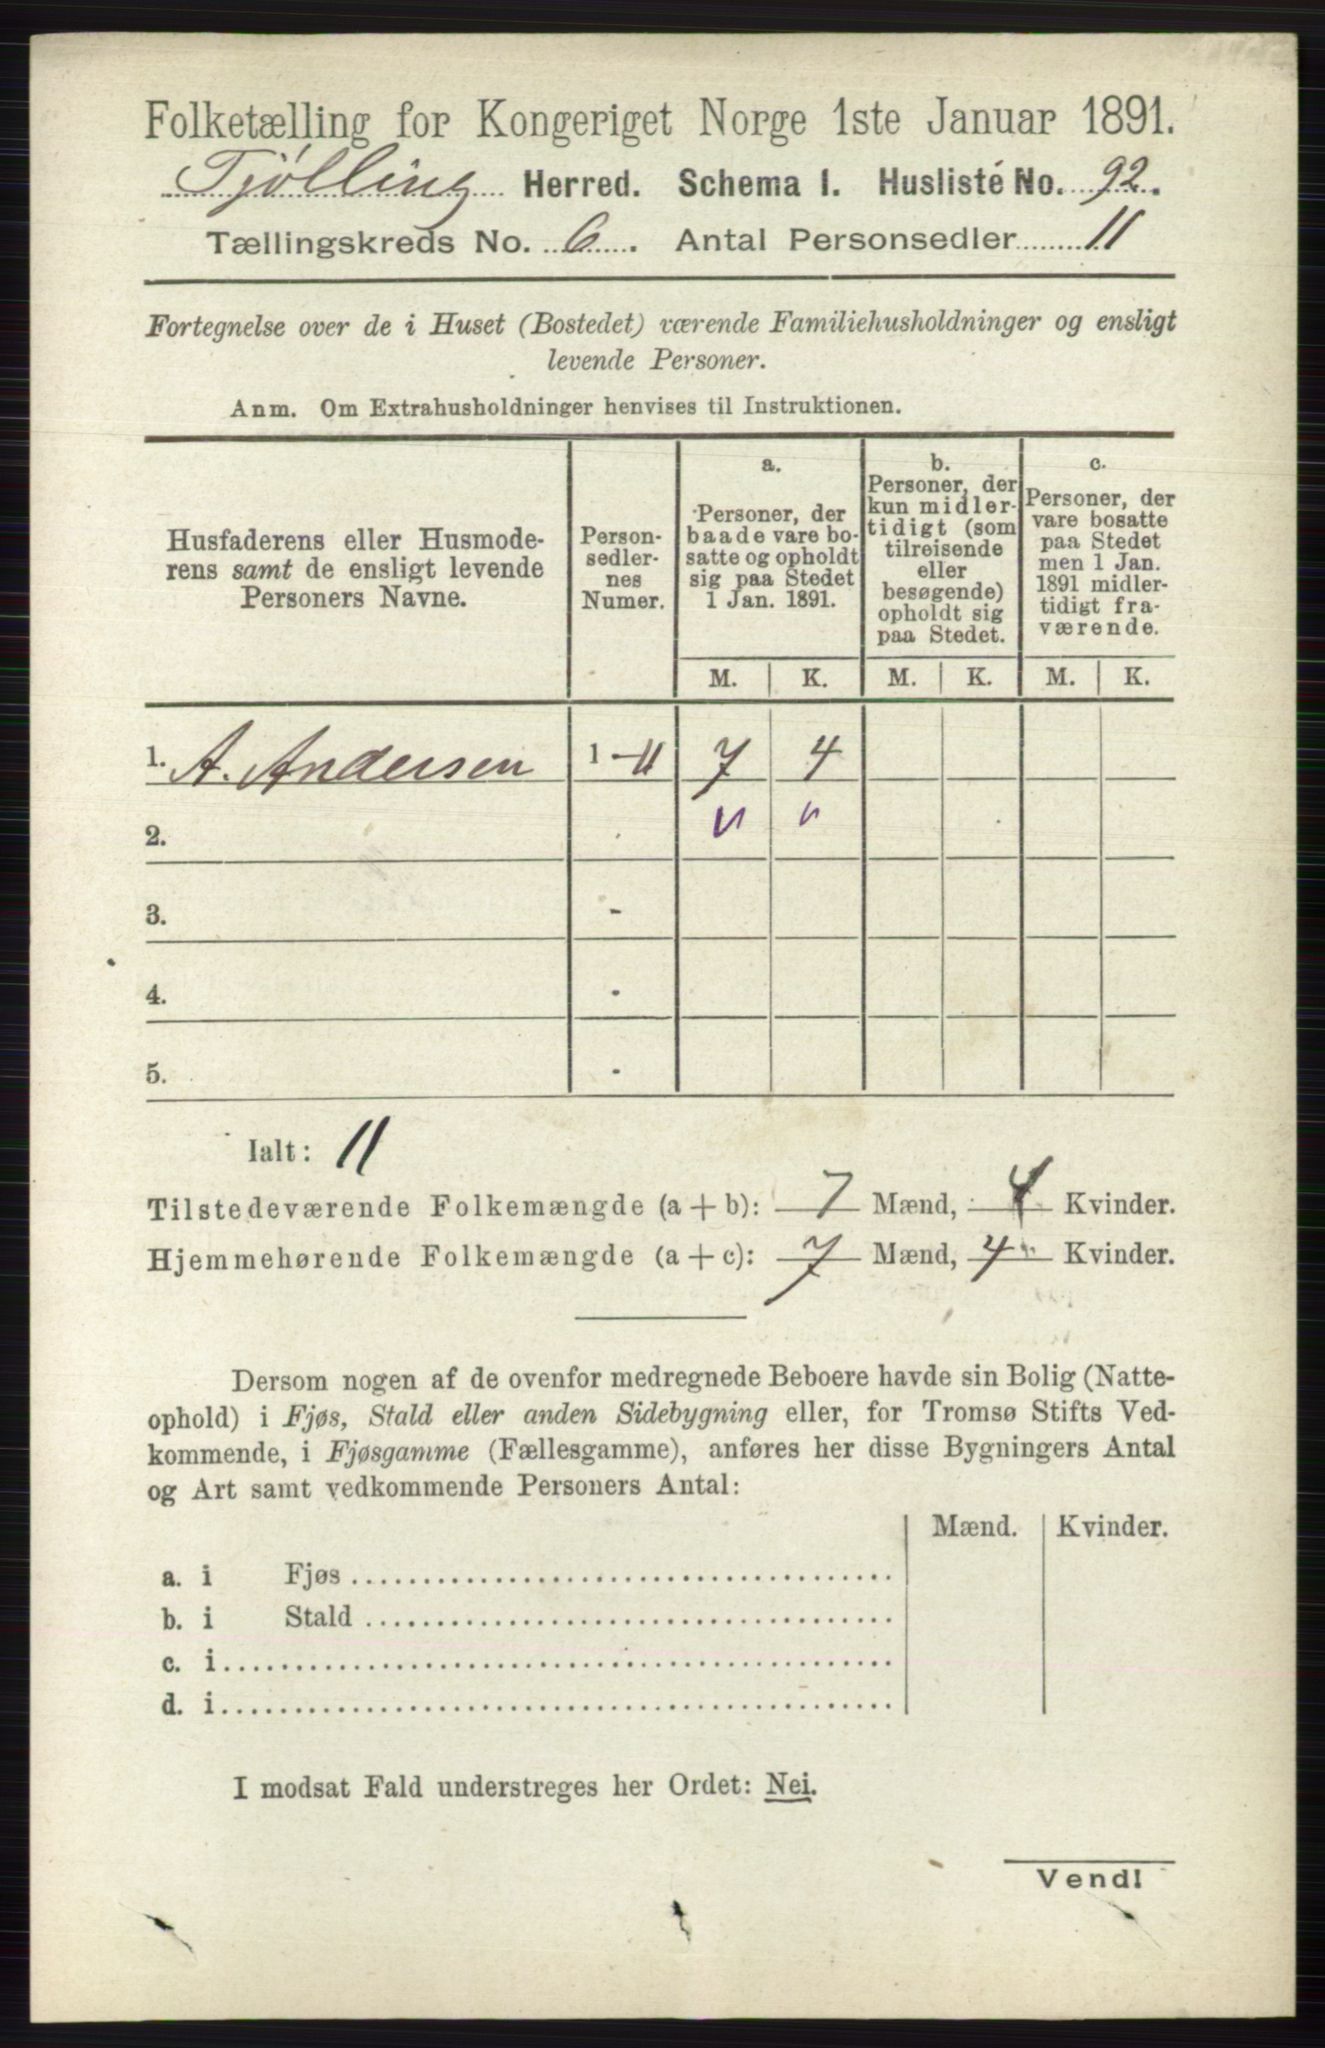 Folketælling for Kongeriget Norge 1ste Januar 1891.
Tjølling Herred. Schema 1. Husliste No. 92.
Tællingskreds No. 6. Antal Personsedler 11
Fortegnelse over de i Huset (Bostedet) værende Familiehusholdninger og ensligt
levende Personer.
Anm. Om Extrahusholdninger henvises til Instruktionen.
Husfaderens eller Husmode-
rens samt de ensligt levende
Personers Navne.
Person-
sedler-
nes
Numer.
a.
Personer, der
baade vare bo-
satte og opholdt
sig paa Stedet
1 Jan. 1891.
b.
Personer, der
kun midler-
tidigt (som
tilreisende
eller
besøgende)
opholdt sig
paa Stedet.
c.
Personer, der
vare bosatte
paa Stedet
men 1 Jan.
1891 midler-
tidigt fra-
værende.
M. K. M. K. M. K.
1. A. Andersen 1-11 7 4
2. " "
3. -
4. -
5. -
Ialt: 11
Tilstedeværende Folkemængde (a + b): 7 Mænd, 4 Kvinder.
Hjemmehørende Folkemængde (a + c): 7 Mænd, 4 Kvinder.
Dersom nogen af de ovenfor medregnede Beboere havde sin Bolig (Natte-
ophold) i Fjøs, Stald eller anden Sidebygning eller, for Tromsø Stifts Ved-
kommende, i Fjøsgamme (Fællesgamme), anføres her disse Bygningers Antal
og Art samt vedkommende Personers Antal:
Mænd. Kvinder.
a. i Fjøs
b. i Stald
c. i
d. i
I modsat Fald understreges her Ordet: Nei.
Vend!